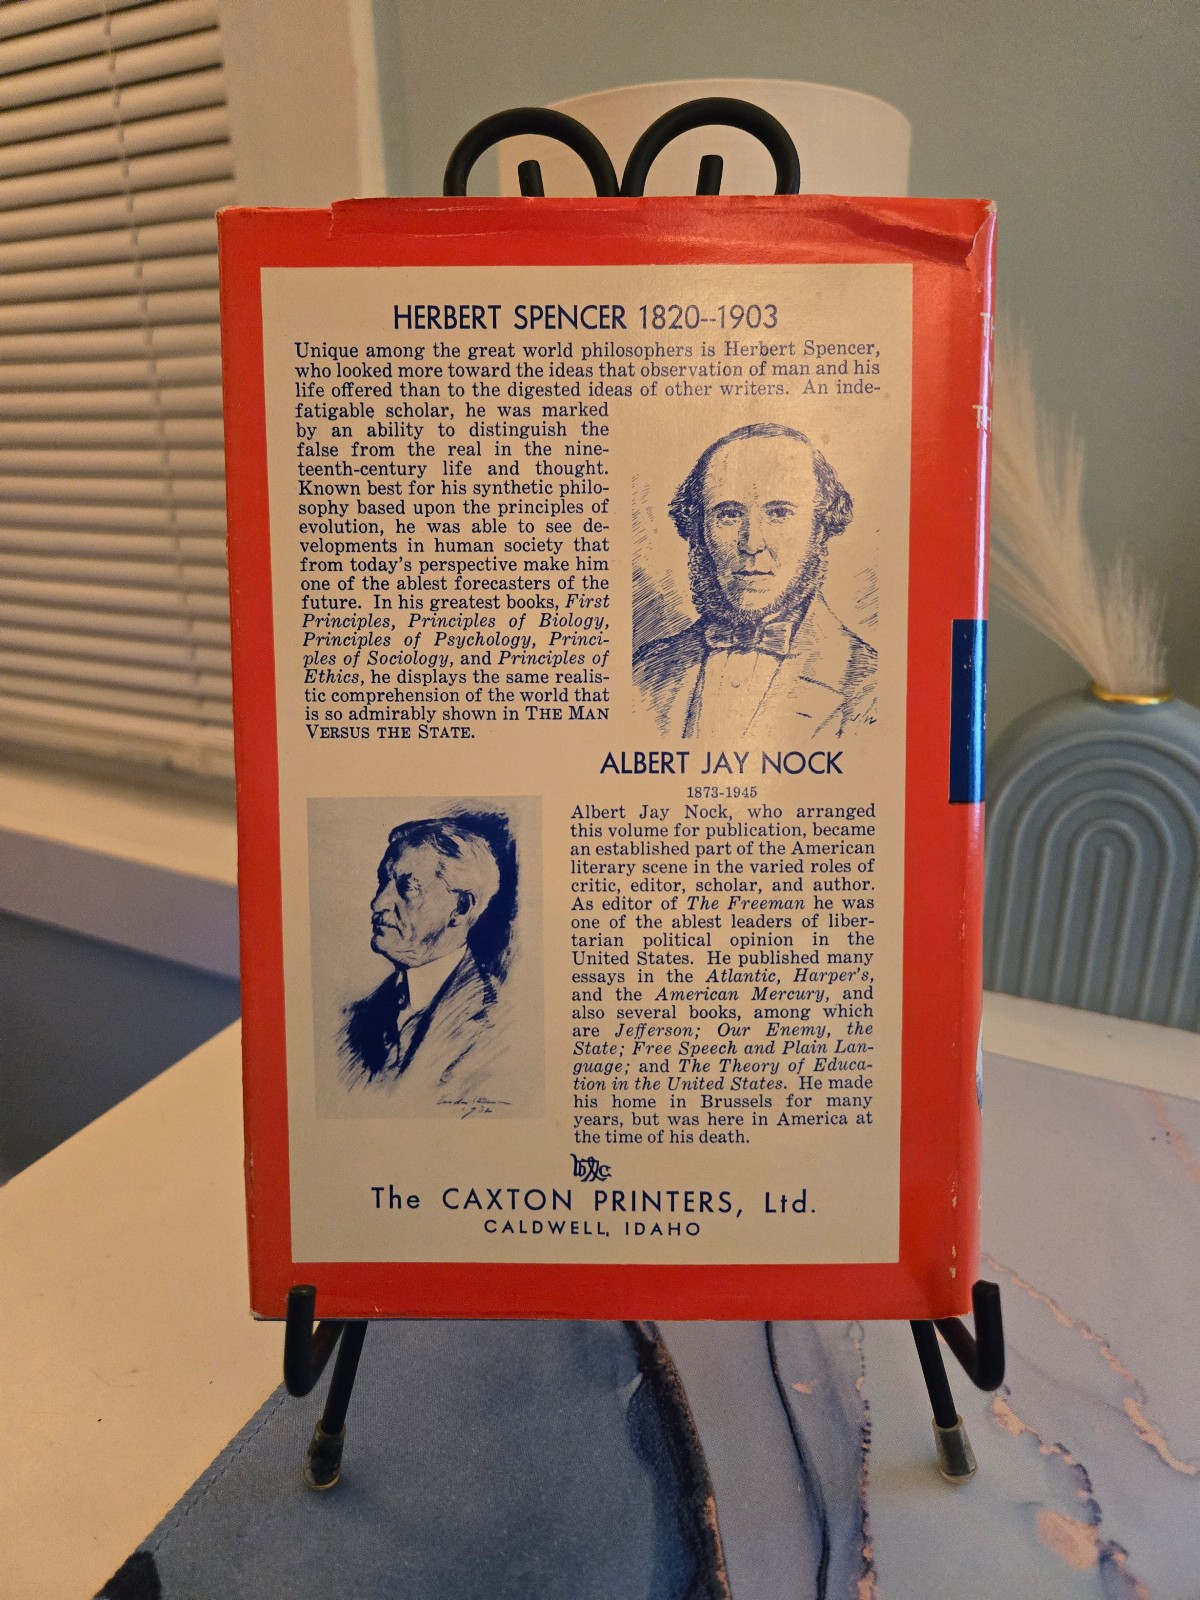 HERBERT SPENCER 1820--1903
Unique among the great world philosophers is Herbert Spencer,
who looked more toward the ideas that observation of man and his
life offered than to the digested ideas of other writers. An inde-
fatigable scholar, he was marked
by an ability to distinguish the
false from the real in the nine-
teenth-century life and thought.
Known best for his synthetic philo-
sophy based upon the principles of
evolution, he was able to see de-
velopments in human society that
from today's perspective make him
one of the ablest forecasters of the
future. In his greatest books, First
Principles, Principles of Biology,
Principles of Psychology, Princi-
ples of Sociology, and Principles of
Ethics, he displays the same realis-
tic comprehension of the world that
is so admirably shown in THE MAN
VERSUS THE STATE.
ALBERT JAY NOCK
1873-1945
Albert Jay Nock, who arranged
this volume for publication, became
an established part of the American
literary scene in the varied roles of
critic, editor, scholar, and author.
As editor of The Freeman he was
one of the ablest leaders of liber-
tarian political opinion in the
United States. He published many
essays in the Atlantic, Harper's,
and the American Mercury, and
also several books, among which
are Jefferson; Our Enemy, the
State; Free Speech and Plain Lan-
guage; and The Theory of Educa-
tion in the United States. He made
his home in Brussels for many
years, but was here in America at
the time of his death.
The CAXTON PRINTERS, Ltd.
CALDWELL, IDAHO